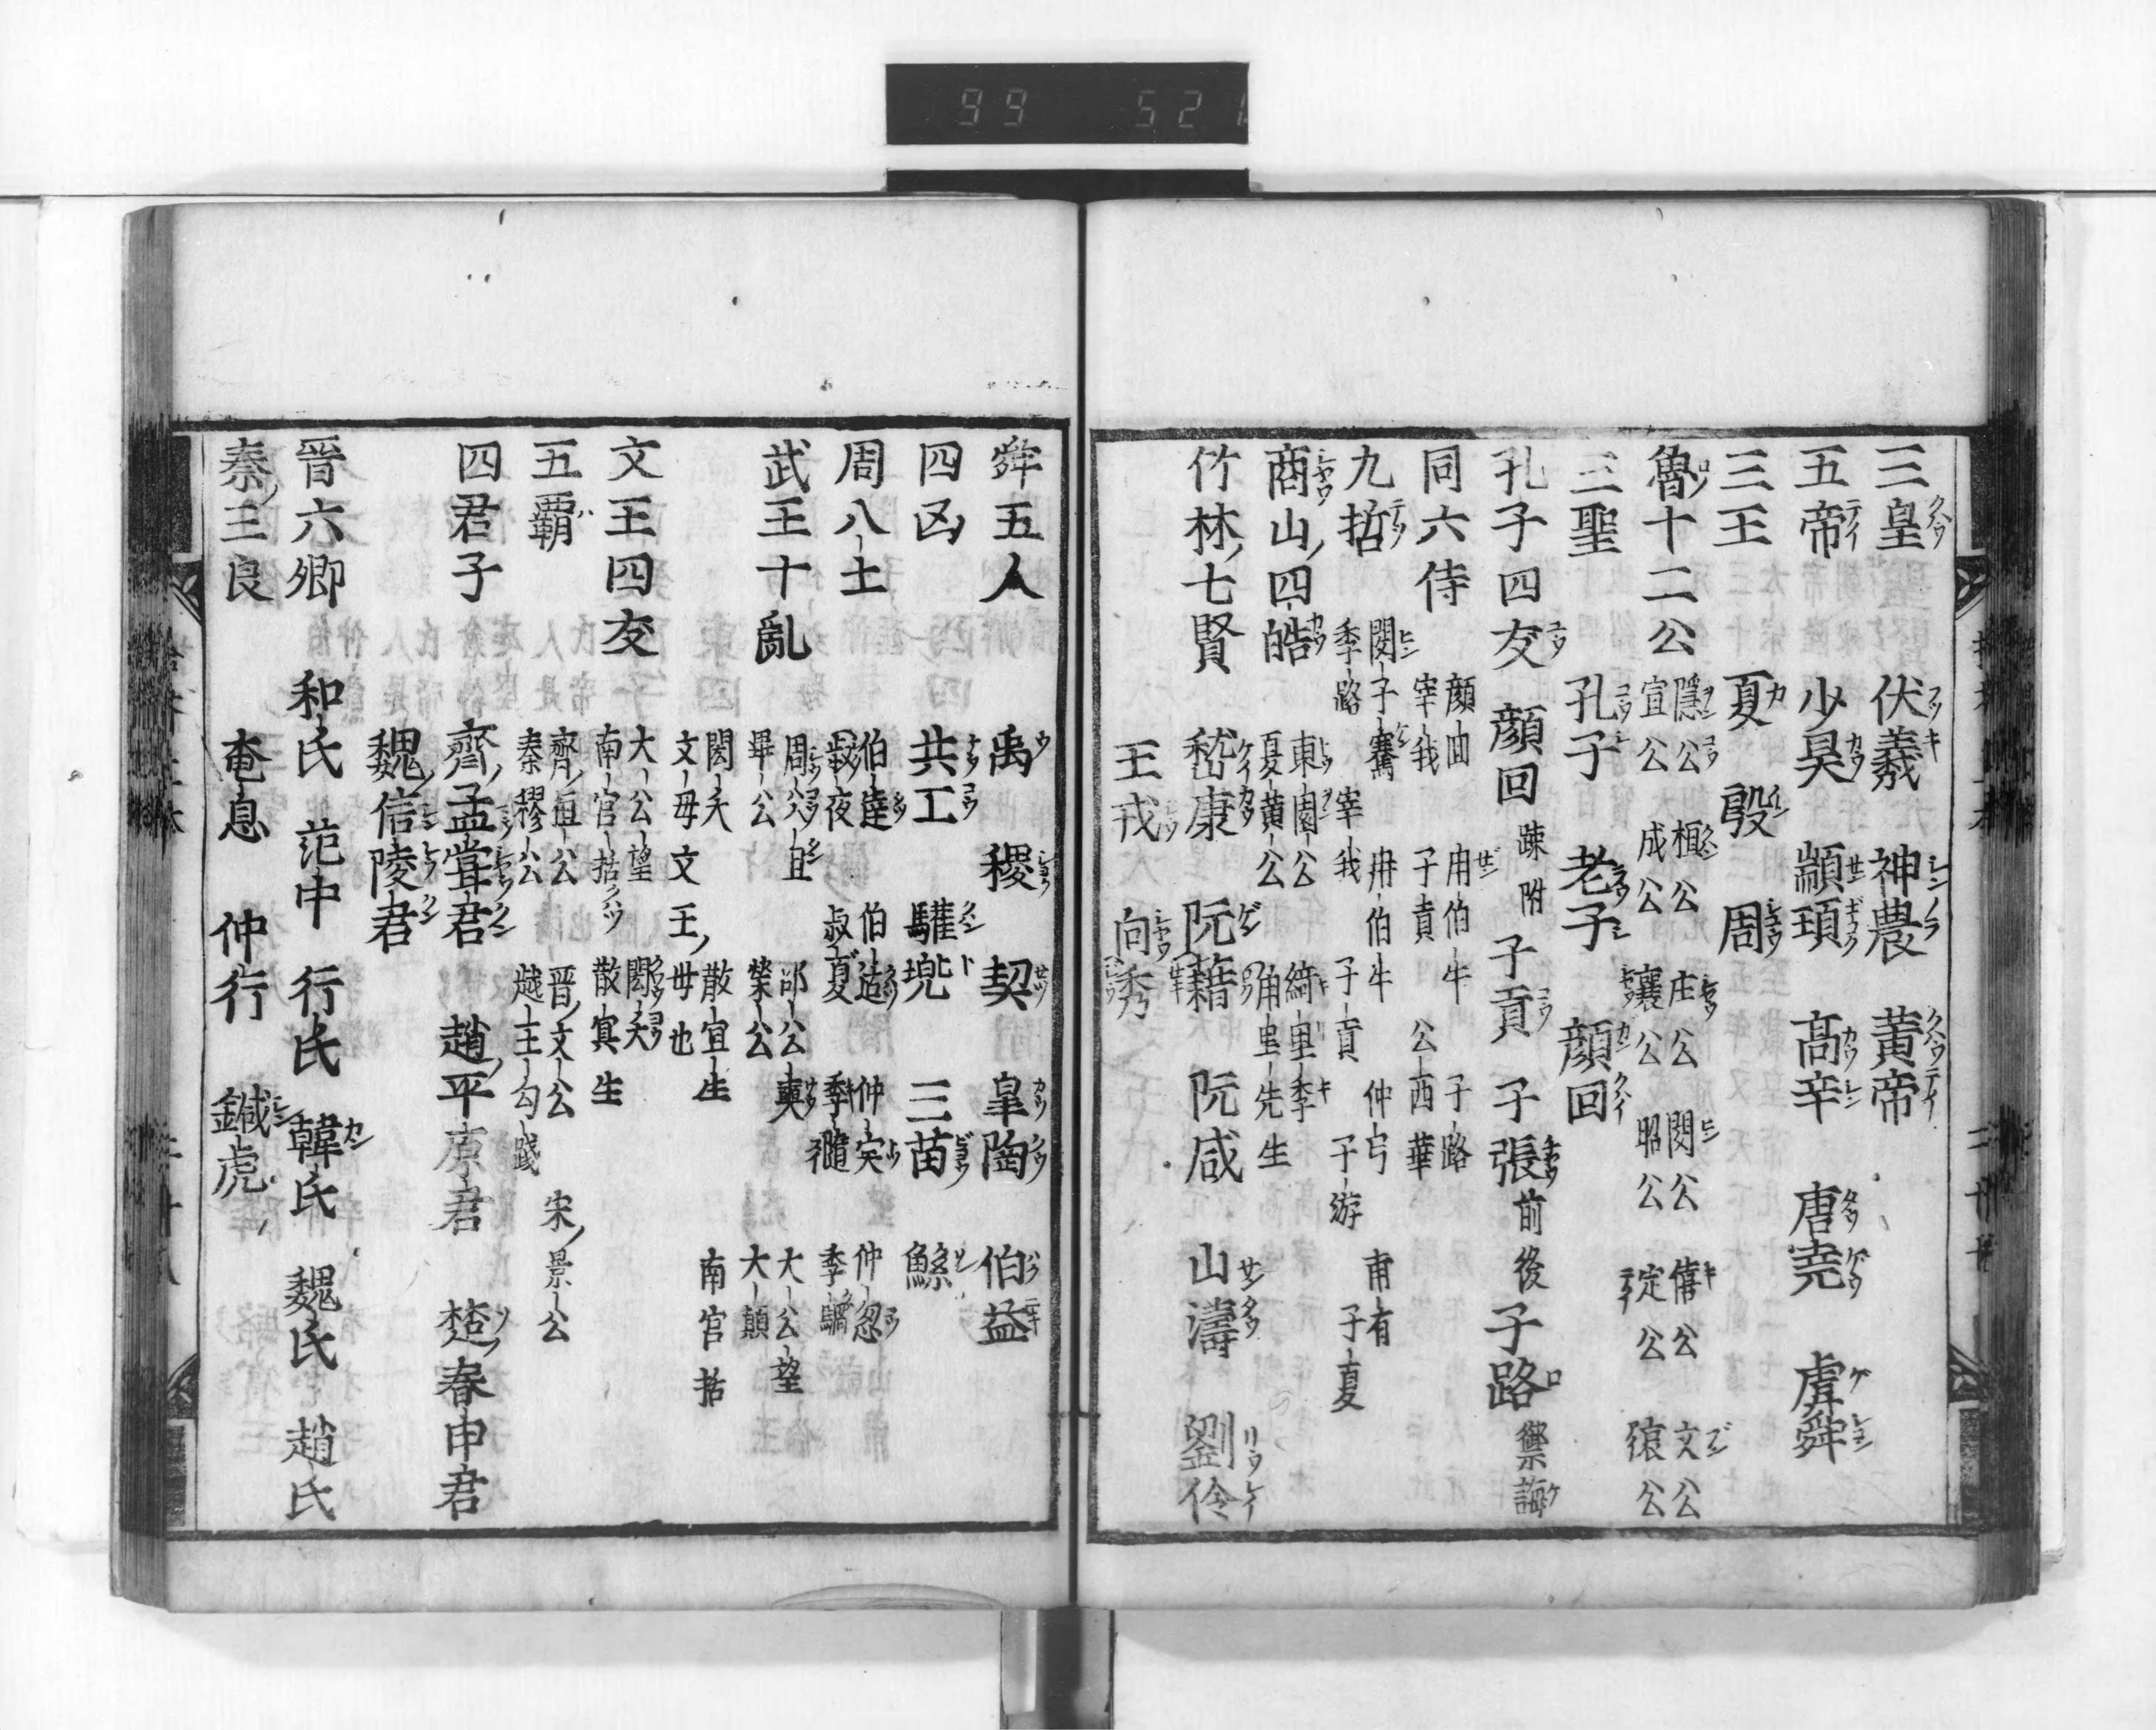 99 521
三皇 伏羲 神農 黃帝
五帝 少昊 顓頊 高辛 唐堯 虞舜
三王 夏 殷 周
魯十二公
隱公 桓公 庄公 閔公 僖公 文公
宣公 成公 襄公 昭公 定公 哀公
三聖 孔子 老子 顔回
孔子四友 顔回 疎附 子貢 子張 前後 子路 禦侮
同六侍
顔回 冉伯牛 子路
宰我 子貢 公西華
九哲
閔子騫 冉伯牛 仲弓 冉有
季路 宰我 子貢 子游 子夏
商山四皓
東園公 綺里季
夏黄公 甪里先生
竹林七賢 嵆康 阮籍 阮咸 山濤 劉伶
王戎 向秀
舜五人 禹 稷 契 皐陶 伯益
四凶 共工 驩兜 三苗 鯀
周八士
伯達 伯适 仲突 仲忽
叔夜 叔夏 季隨 季騧
武王十亂
周公旦 邵公奭 大公望
畢公 榮公 大顛
閎夭 散宜生 南官括
文母文王毋也
文王四友
大公望 閎夭
南官括 散冥生
五覇
齊桓公 晋文公 宋景公
秦穆公 越王勾踐
四君子 齊孟甞君 趙平原君 楚春申君
魏信陵君
晉六卿 和氏 范中 行氏 韓氏 魏氏 趙氏
秦三良 奄息 仲行 鍼虎